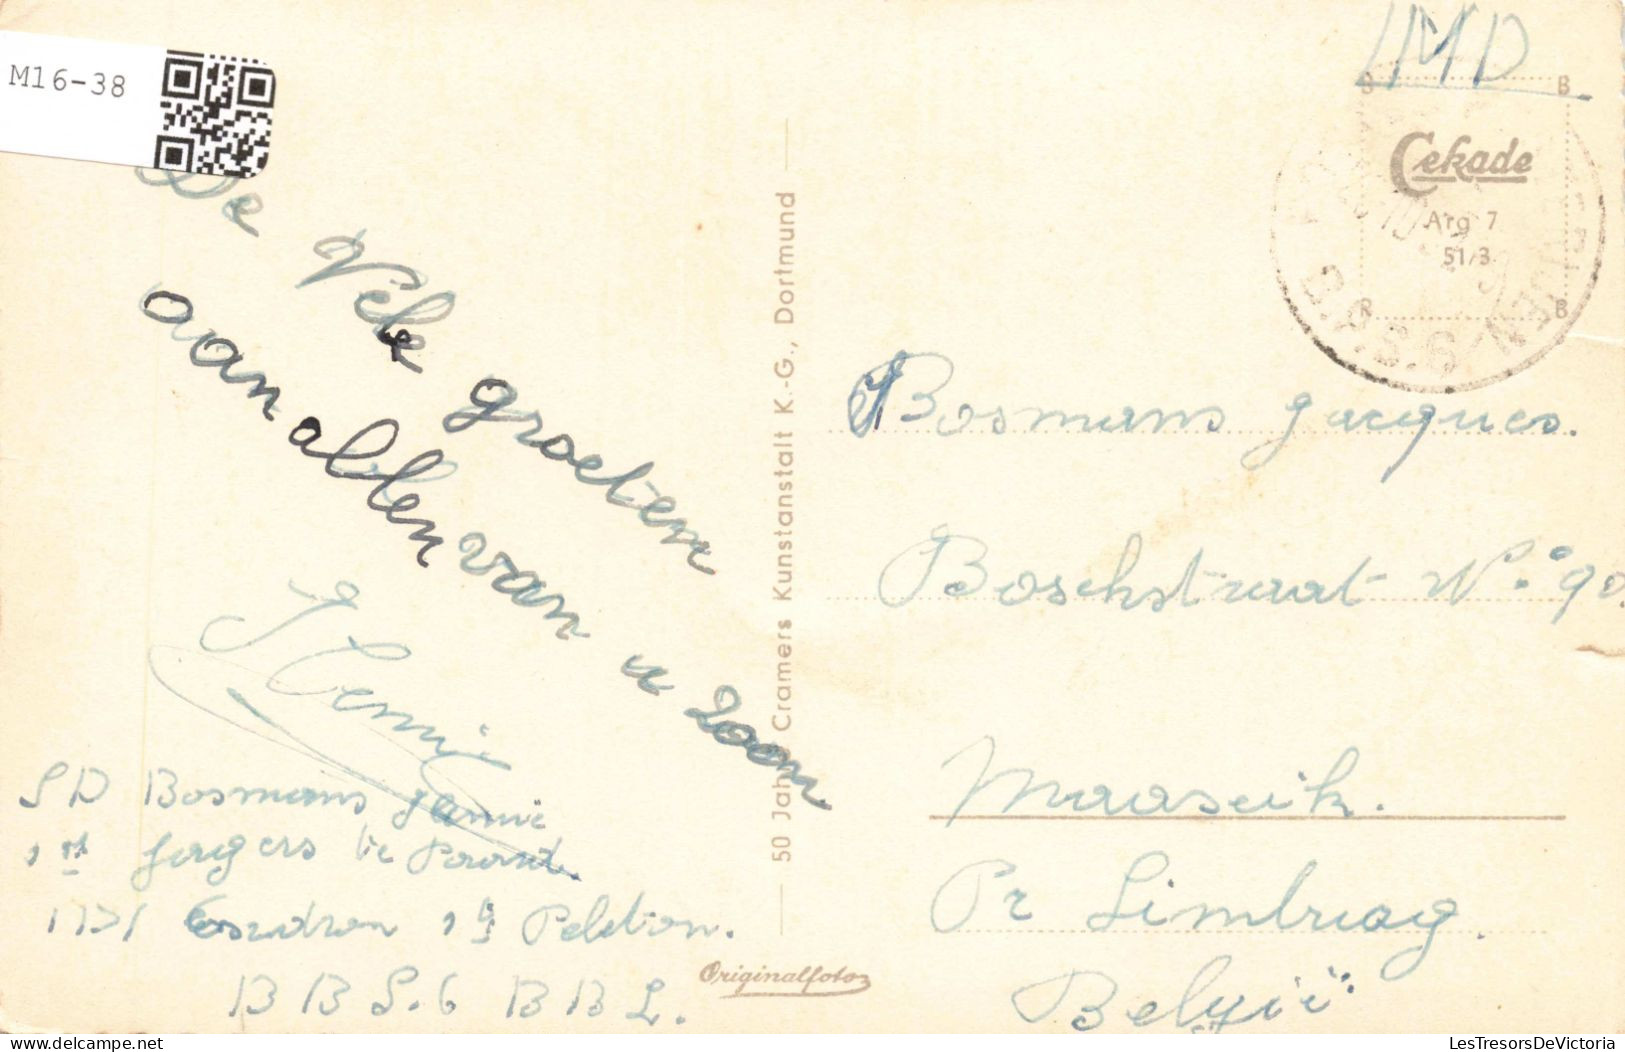 M16-38
De Vele groeten
aan allen van u zoon
Jemie
SD Bosmans Jemie
1st Jagers te Paard
Esuadron 1e Peleton.
B B S. 6 B B L.
50 Jahre Cramers Kunstanstalt K.-G., Dortmund
Originalfoto
LMD
B B
Cekade
Arg 7
51/3
R B
B.P.S.6
Bosmans Jacques.
Boschstraat N° 90
Maaseik.
Pr Limbrug.
Belgïe
LesTresorsDeVictoria